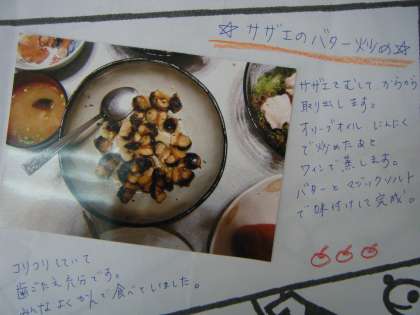 ☆サザエのバター炒め☆
サザエをむして からから
取り出します。
オリーブオイル にんにく
で炒めたあと
ワインで蒸します。
バターとマジックソルト
で味付けして完成。
コリコリしていて
歯ごたえ充分です。
みんなよくかんで食べていました。